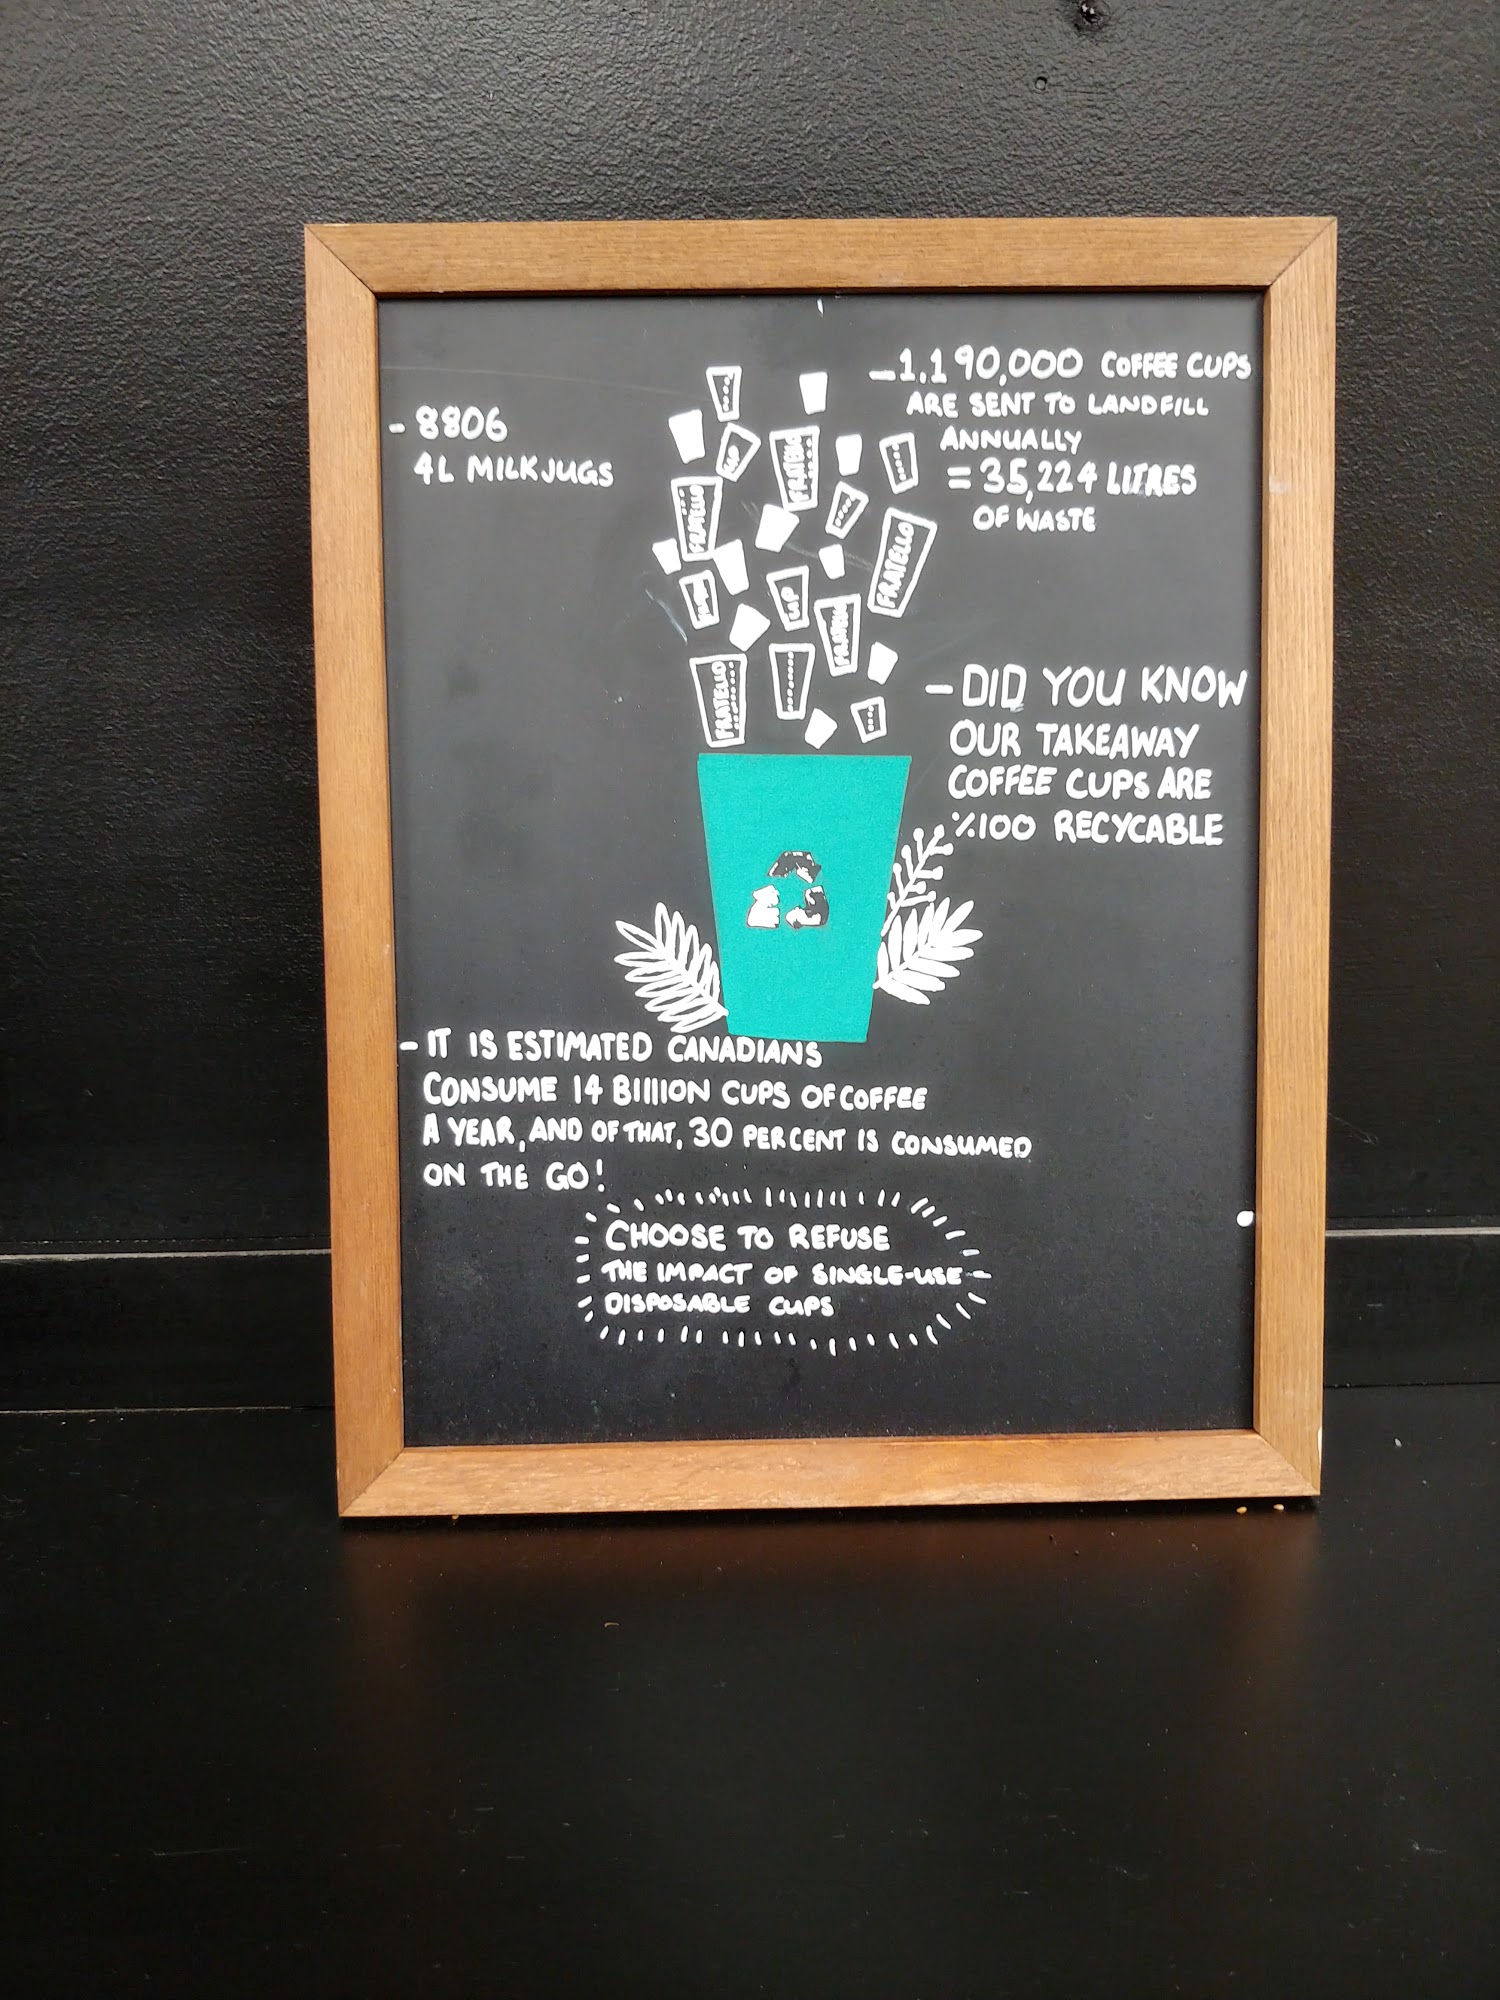 - 8806
4L MILK JUGS
- 1.190,000 COFFEE CUPS
ARE SENT TO LANDFILL
ANNUALLY
= 35,224 LITRES
OF WASTE
FRATELLO
FRATELLO
FRATELLO
FRATELLO
FRATELLO
- DID YOU KNOW
OUR TAKEAWAY
COFFEE CUPS ARE
%100 RECYCABLE
- IT IS ESTIMATED CANADIANS
CONSUME 14 BILLION CUPS OF COFFEE
A YEAR, AND OF THAT, 30 PERCENT IS CONSUMED
ON THE GO!
CHOOSE TO REFUSE
THE IMPACT OF SINGLE-USE
DISPOSABLE CUPS